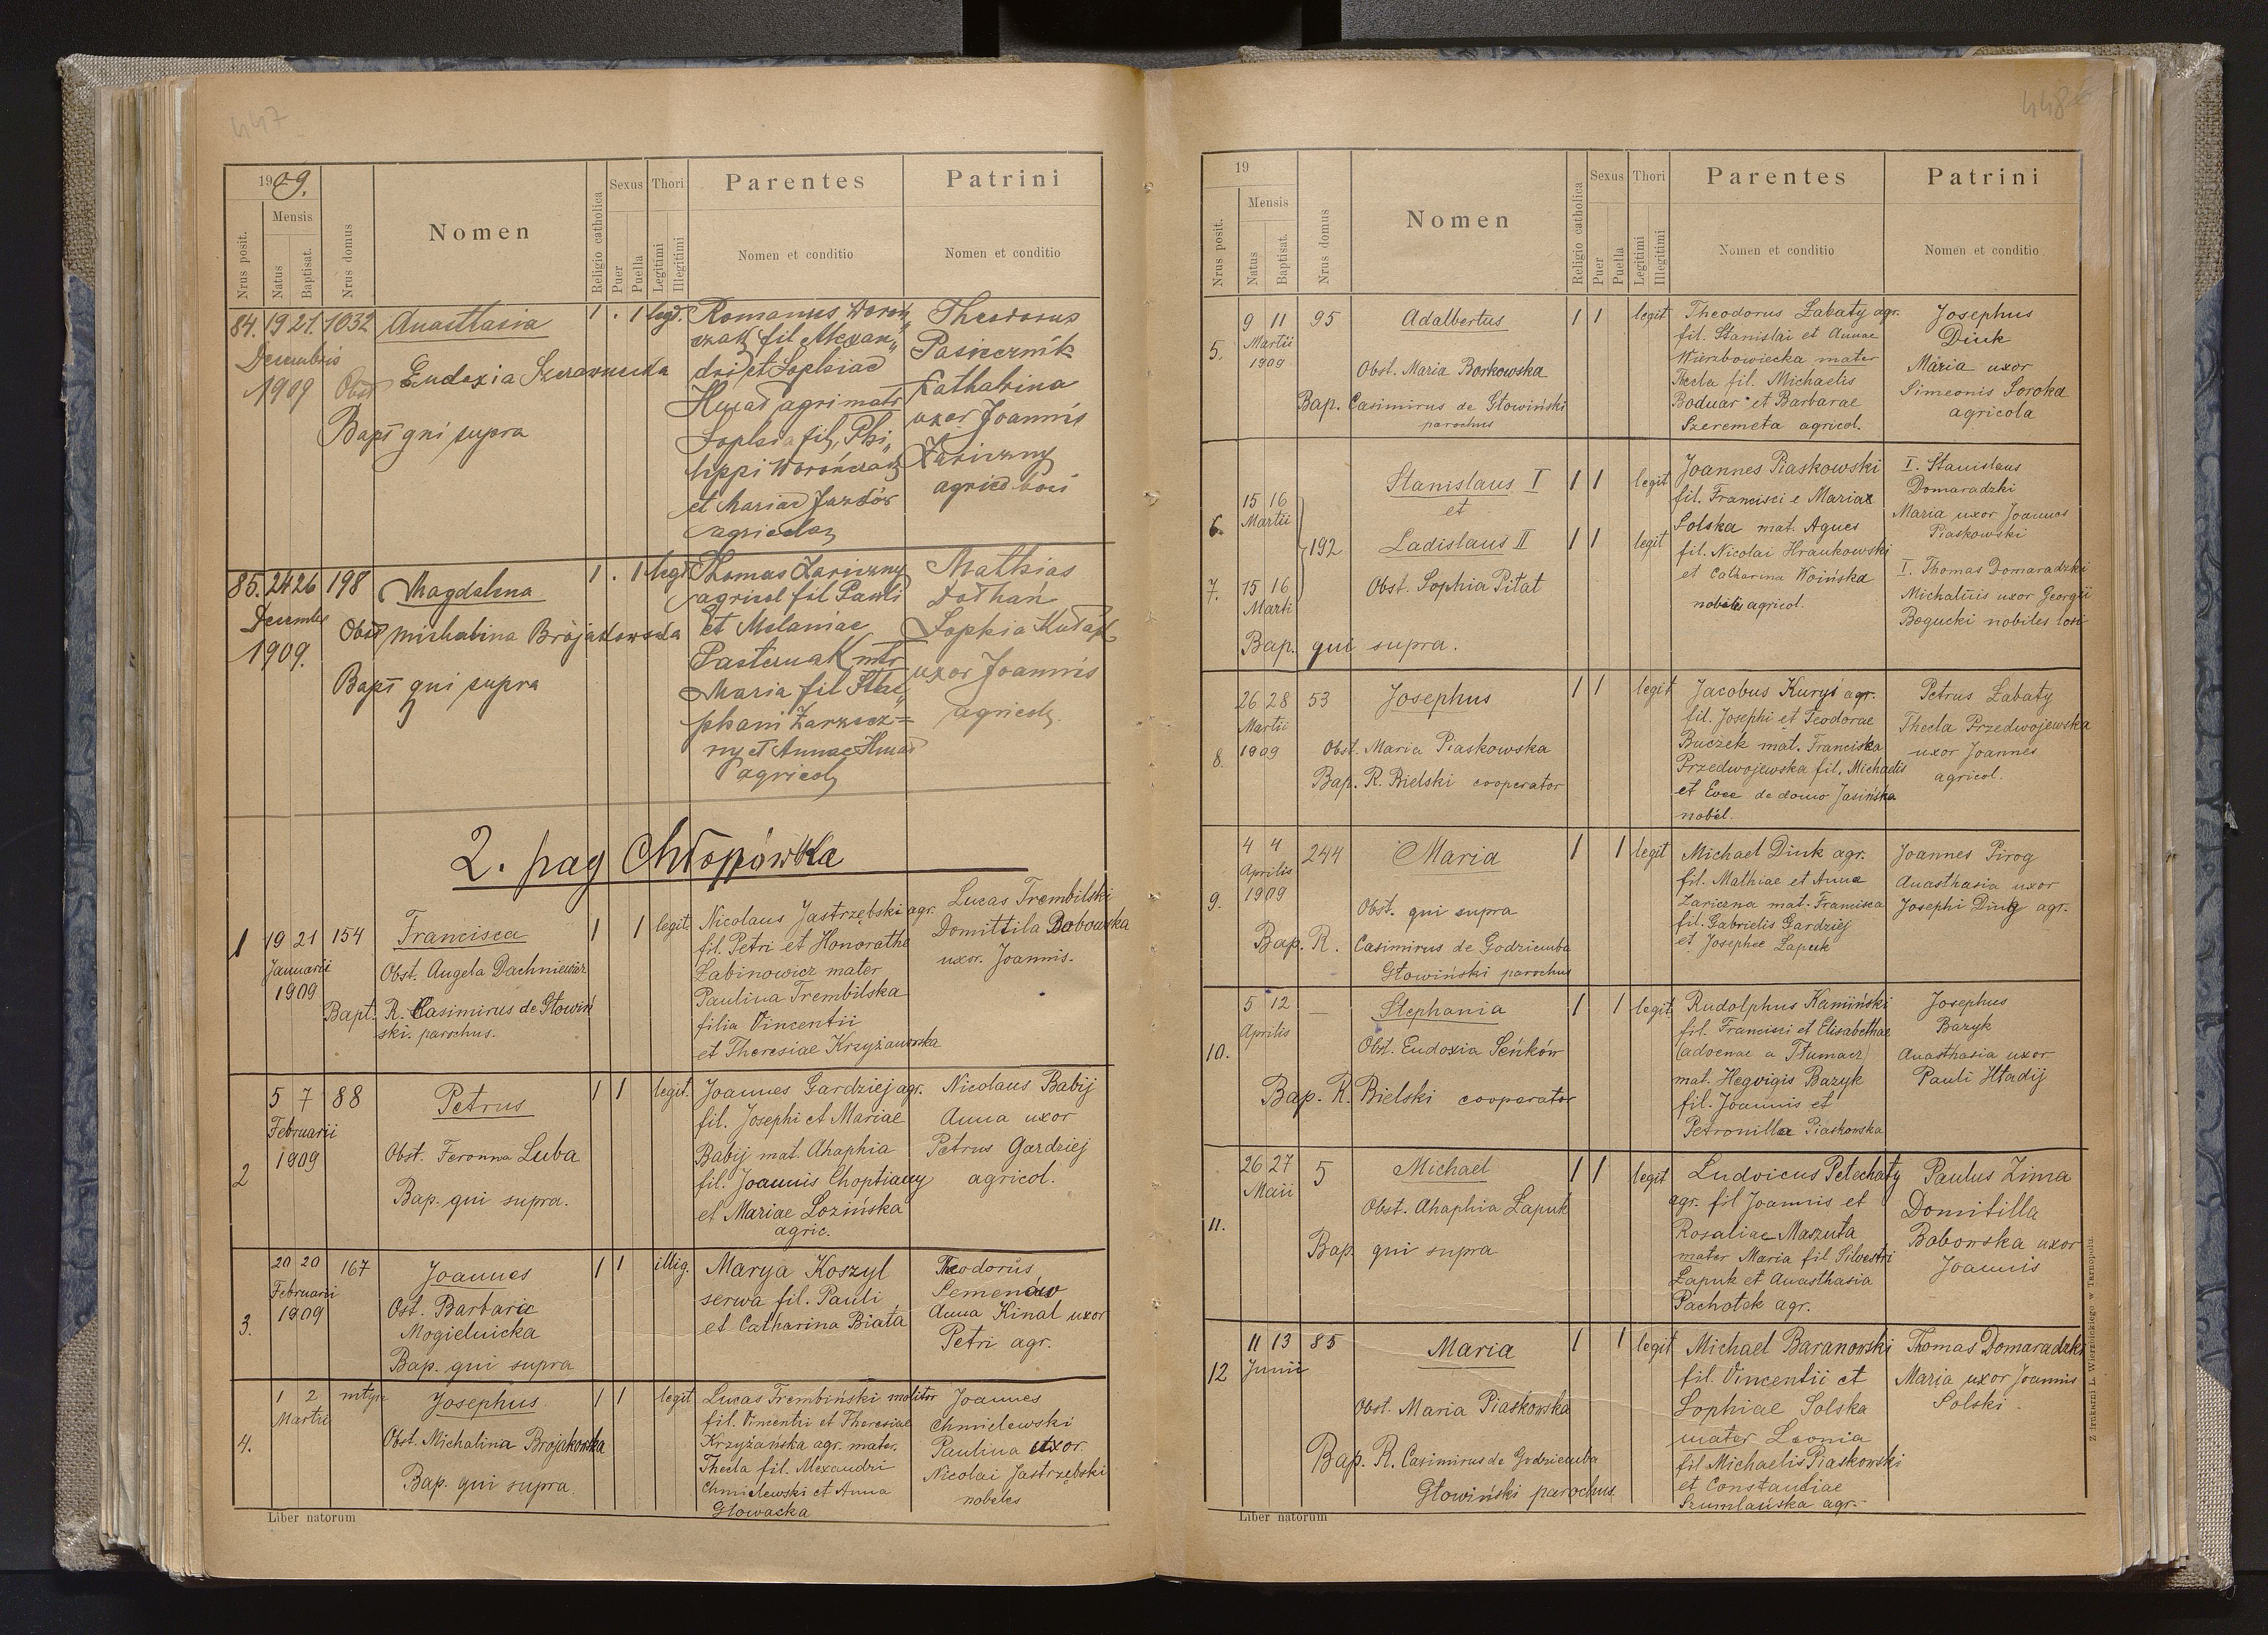 447
1909.
Nrus posit.
Mensis
Natus
Baptisat.
Nrus domus
Nomen
Religio catholica
Sexus
Puer
Puella
Thori
Legitimi
Illegitimi
Parentes
Nomen et conditio
Patrini
Nomen et conditio
84. 19 21. 1032 Anasttasia 1 . 1 legt.
Decembris
1909 Obst Eudoxia
Bapt qui supra
Romanus Woroń„
czak fil Alexan„
dri et Sophiae
Hucał agri matr
Sophia fil, Phi„
lippiWorończak
et Mariae Jazdów
agricolar
Theodorus
Pasiecznik
Catharina
uxor Joannis
Zariczny
agricol
85. 24 26 198 Magdalena 1 . 1 legt
Decembr
1909.
Obst Michalina Brojakowska
Bapt qui supra
Thomas Zariczny
agricol fil Pauli
et Melaniae
Pasternak mtr
Maria fil Ste„
phani Zarzecz=
ny et Annae
agricol
Mathias
Dothań
Sophia
uxor Joannis
agricol.
2. pag Chłopówka
1 19 21 154 Francisca 1 1 legit
Januarii
1909
Obst. Angela Dachniewicz
Bapt. R. Casimirus de Głowiń
ski. parochus.
Nicolaus Jastrzębski agr.
fil. Petri et Honorathe
Łabinowicz mater
Paulina Trembilska
filia Vincentii
et Theresiae Krzyżanowska
Lucas Trembilski
Domittila Bobowska
uxor. Joannis.
2 5 7 88 Petrus 1 1 legit.
Februarii
1909
Obst. Feronna Luba
Bap. qui supra.
Joannes Gardziej agr.
fil. Josephi et Mariae
Babij mat. Ahaphia
fil. Joannis Choptiany
et Mariae Lozińska
agric.
Nicolaus Babij
Anna uxor
Petrus Gardziej
agricol.
3. 20 20 167 Joannes 1 1 illig.
Februarii
1909
Ost. Barbara
Mogielnicka
Bap. qui supra
Marya Koszyl
serwa fil. Pauli
et Catharina Biała
Theodorus
Semenów
Anna Kinal uxor
Petri agr.
4. 1 2 młyn Josephus 1 1 legit
Martii
Obst. Michalina Brojakowska
Bap. qui supra.
Lucas Trembiński molitor
fil. Vincentii et Theresiae
Krzyżańska agr. mater.
Thecla fil. Alexandri
Chmielewski et Anna
Głowacka
Joannes
Chmielewski
Paulina uxor.
Nicolai Jastrzębski
nobeles
Liber natorum
448
19
Nrus posit.
Mensis
Natus
Baptisat.
Nrus domus
Nomen
Religio catholica
Sexus
Puer
Puella
Thori
Legitimi
Illegitimi
Parentes
Nomen et conditio
Patrini
Nomen et conditio
5. 9 11 95 Adalbertus 1 1 legit
Martii
1909
Obst. Maria Borkowska
Bap. Casimirus de Głowiński
parochus
Theodorus Łabaty agr.
fil. Stanislai et Annae
Wierzbowiecka mater
Thecla fil. Michaelis
Boduar et Barbarae
Szeremeta agricol.
Josephus
Diuk
Maria uxor
Simeonis Soroka
agricola
6. 15 16 Stanislaus I 1 1 legit
Martii
et
192 Ladislaus II 1 1 legit
7. 15 16 Obst. Sophia Pitat
Marti
Bap. qui supra.
Joannes Piaskowski
fil. Francisci e Mariae
Solska mat. Agnes
fil. Nicolai Hraukowski
et Catharina Woińska
nobiles agricol.
I. Stanislaus
Domaradzki
Maria uxor Joannes
Piaskowski
I. Thomas Domaradzki
Michalina uxor Georgii
Bogucki nobiles loci
8. 26 28 53 Josephus 1 1 legit
Martii
1909
Obst. Maria Piaskowska
Bap. R. Bielski cooperator
Jacobus Kuryś agr.
fil. Josephi et Teodorae
Buczek mat. Franciska
Przedwojewska fil. Michaelis
et Evae de domo Jasińska
nobel.
Petrus Łabaty
Thecla Przedwojewska
uxor Joannes
agricol.
9. 4 4 244 Maria 1 1 legit
Aprilis
1909
Obst. qui supra
Bap. R. Casimirus de Godziemba
Głowiński parochus
Michael Diuk agr.
fil. Mathiae et Anna
Zariczna mat. Francisca
fil. Gabrielis Gardziej
et Josephae Łapuk
Joannes Pirog
Anasthasia uxor
Josephi Diug agr.
10. 5 12 — Stephania 1 1 legit
Aprilis
Obst. Eudoxia Seńków
Bap. R. Bielski cooperator
Rudolphus Kamiński
fil. Francisci et Elisabethae
(advenae a Tłumacz)
mat. Hegvigis Bazyk
fil. Joannis et
Petronilla Piaskowska
Josephus
Bazyk
Anasthasia uxor
Pauli Hładij
11. 26 27 5 Michael 1 1 legit
Maii
Obst. Ahaphia Łapuk
Bap. qui supra
Ludvicus Petechaty
agr. fil Joannis et
Rosaliae Maszuta
mater Maria fil Silvestri
Łapuk et Anasthasia
Pachołek agr.
Paulus Zima
Domitilla
Bobowska uxor
Joannis
12 11 13 85 Maria 1 1 legit
Junii
Obst. Maria Piaskowska
Bap. R. Casimirus de Godziemba
Głowiński parochus
Michael Baranowski
fil. Vincentii et
Sophiae Solska
mater Leonia
fil Michaelis Piaskowski
et Constantiae
Szumlańska agr.
Thomas Domaradzki
Maria uxor Joannis
Solski.
Liber natorum
Z drukarni L. Wierzbickiego w Tarnopolu.